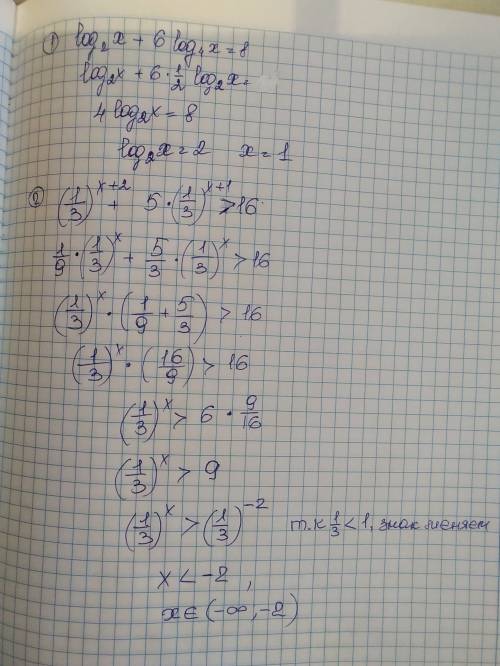 ① log₂x + 6 log₄x = 8
log₂x + 6 · 1/2 log₂x =
4 log₂x = 8
log₂x = 2 x = 1
② (1/3)^(x+2) + 5 · (1/3)^(x+1) > 16
1/9 · (1/3)^x + 5/3 · (1/3)^x > 16
(1/3)^x · (1/9 + 5/3) > 16
(1/3)^x · (16/9) > 16
(1/3)^x > 6 · 9/16
(1/3)^x > 9
(1/3)^x > (1/3)^(-2) т.к 1/3 < 1, знак меняем
x < -2,
x ∈ (-∞, -2)